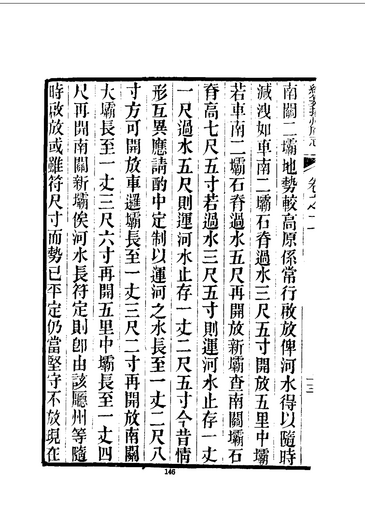 續纂揚州府志
卷之二
十三
南關二壩地勢較高原係常行啟放俾河水得以隨時
減洩如車南二壩石脊過水三尺五寸開放五里中壩
若車南二壩石脊過水五尺再開放新壩查南關壩石
脊高七尺五寸若過水三尺五寸則運河水止存一丈
一尺過水五尺則運河水止存一丈二尺五寸今昔情
形互異應請酌中定制以運河之水長至一丈二尺八
寸方可開放車邏壩長至一丈三尺二寸再開放南關
大壩長至一丈三尺六寸再開五里中壩長至一丈四
尺再開南關新壩俟河水長符定則卽由該廳州等隨
時啟放或雖符尺寸而勢已平定仍當堅守不放現在
146